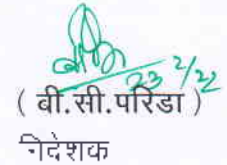 23/2/22
( बी.सी.परिडा )
निदेशक